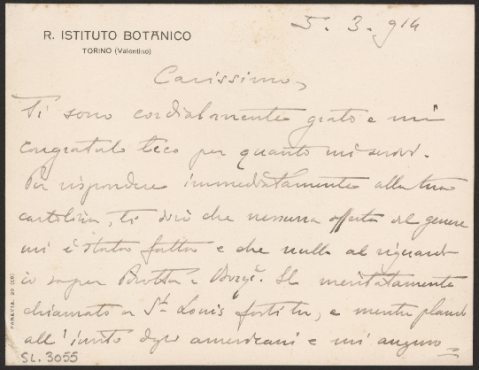 5. 3. 914
R. ISTITUTO BOTANICO
TORINO (Valentino)
Carissimo,
Ti sono cordialmente grato e mi
congratulo teco per quanto mi scrivi.
Per rispondere immediatamente alla tua
cartolina, ti dirò che nessuna offerta del genere
mi è stata fatta e che nulla al riguardo
io sapevo Il meritatamente
chiamato a St Louis fosti tu, e mentre plaudo
all'invito degli americani e mi auguro
SL. 3055